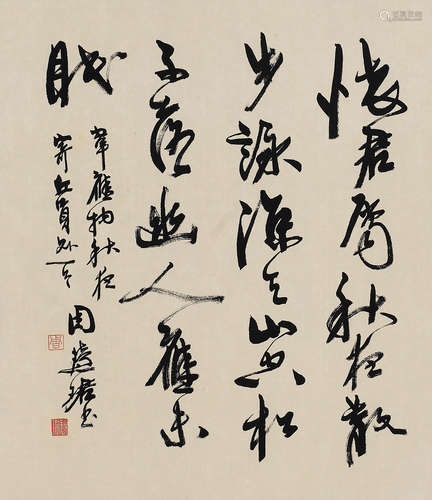 怀君属秋夜散
步咏凉天山空松
子落幽人应未
眠
韦应物秋夜
寄丘员外一首
周慧珺书